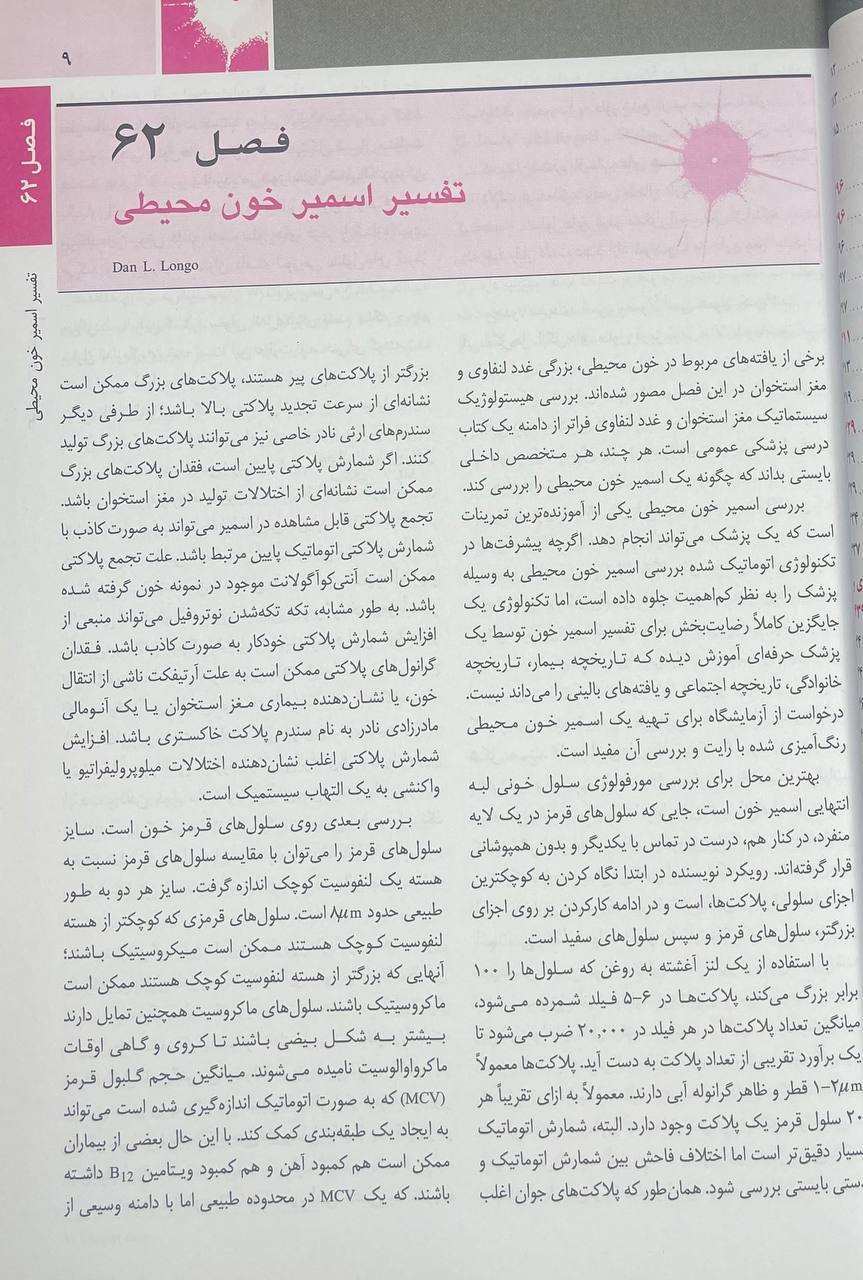 ۹
فصل ۶۲
تفسیر اسمیر خون محیطی
فصل ۶۲
تفسیر اسمیر خون محیطی
Dan L. Longo
برخی از یافته‌های مربوط در خون محیطی، بزرگی غدد لنفاوی و
مغز استخوان در این فصل مصور شده‌اند. بررسی هیستولوژیک
سیستماتیک مغز استخوان و غدد لنفاوی فراتر از دامنه یک کتاب
درسی پزشکی عمومی است. هر چند، هر متخصص داخلی
بایستی بداند که چگونه یک اسمیر خون محیطی را بررسی کند.
بررسی اسمیر خون محیطی یکی از آموزنده‌ترین تمرینات
است که یک پزشک می‌تواند انجام دهد. اگرچه پیشرفت‌ها در
تکنولوژی اتوماتیک شده بررسی اسمیر خون محیطی به وسیله
پزشک را به نظر کم‌اهمیت جلوه داده است، اما تکنولوژی یک
جایگزین کاملاً رضایت‌بخش برای تفسیر اسمیر خون توسط یک
پزشک حرفه‌ای آموزش دیده که تاریخچه بیمار، تاریخچه
خانوادگی، تاریخچه اجتماعی و یافته‌های بالینی را می‌داند نیست.
درخواست از آزمایشگاه برای تهیه یک اسمیر خون محیطی
رنگ‌آمیزی شده با رایت و بررسی آن مفید است.
بهترین محل برای بررسی مورفولوژی سلول خونی لبه
انتهایی اسمیر خون است، جایی که سلول‌های قرمز در یک لایه
منفرد، در کنار هم، درست در تماس با یکدیگر و بدون همپوشانی
قرار گرفته‌اند. رویکرد نویسنده در ابتدا نگاه کردن به کوچکترین
اجزای سلولی، پلاکت‌ها، است و در ادامه کارکردن بر روی اجزای
بزرگتر، سلول‌های قرمز و سپس سلول‌های سفید است.
با استفاده از یک لنز آغشته به روغن که سلول‌ها را ۱۰۰
برابر بزرگ می‌کند، پلاکت‌ها در ۶-۵ فیلد شمرده می‌شود،
میانگین تعداد پلاکت‌ها در هر فیلد در ۲۰,۰۰۰ ضرب می‌شود تا
یک برآورد تقریبی از تعداد پلاکت به دست آید. پلاکت‌ها معمولاً
۱-۲μm قطر و ظاهر گرانوله آبی دارند. معمولاً به ازای تقریباً هر
۲۰ سلول قرمز یک پلاکت وجود دارد. البته، شمارش اتوماتیک
بسیار دقیق‌تر است اما اختلاف فاحش بین شمارش اتوماتیک و
دستی بایستی بررسی شود. همان‌طور که پلاکت‌های جوان اغلب
بزرگتر از پلاکت‌های پیر هستند، پلاکت‌های بزرگ ممکن است
نشانه‌ای از سرعت تجدید پلاکتی بالا باشد؛ از طرفی دیگر
سندرم‌های ارثی نادر خاصی نیز می‌توانند پلاکت‌های بزرگ تولید
کنند. اگر شمارش پلاکتی پایین است، فقدان پلاکت‌های بزرگ
ممکن است نشانه‌ای از اختلالات تولید در مغز استخوان باشد.
تجمع پلاکتی قابل مشاهده در اسمیر می‌تواند به صورت کاذب با
شمارش پلاکتی اتوماتیک پایین مرتبط باشد. علت تجمع پلاکتی
ممکن است آنتی‌کوآگولانت موجود در نمونه خون گرفته شده
باشد. به طور مشابه، تکه تکه‌شدن نوتروفیل می‌تواند منبعی از
افزایش شمارش پلاکتی خودکار به صورت کاذب باشد. فقدان
گرانول‌های پلاکتی ممکن است به علت آرتیفکت ناشی از انتقال
خون، یا نشان‌دهنده بیماری مغز استخوان یا یک آنومالی
مادرزادی نادر به نام سندرم پلاکت خاکستری باشد. افزایش
شمارش پلاکتی اغلب نشان‌دهنده اختلالات میلوپرولیفراتیو یا
واکنشی به یک التهاب سیستمیک است.
بررسی بعدی روی سلول‌های قرمز خون است. سایز
سلول‌های قرمز را می‌توان با مقایسه سلول‌های قرمز نسبت به
هسته یک لنفوسیت کوچک اندازه گرفت. سایز هر دو به طور
طبیعی حدود ۸μm است. سلول‌های قرمزی که کوچکتر از هسته
لنفوسیت کوچک هستند ممکن است میکروسیتیک باشند؛
آنهایی که بزرگتر از هسته لنفوسیت کوچک هستند ممکن است
ماکروسیتیک باشند. سلول‌های ماکروسیت همچنین تمایل دارند
بیشتر به شکل بیضی باشند تا کروی و گاهی اوقات
ماکرواوالوسیت نامیده می‌شوند. میانگین حجم گلبول قرمز
(MCV) که به صورت اتوماتیک اندازه‌گیری شده است می‌تواند
به ایجاد یک طبقه‌بندی کمک کند. با این حال بعضی از بیماران
ممکن است هم کمبود آهن و هم کمبود ویتامین B12 داشته
باشند. که یک MCV در محدوده طبیعی اما با دامنه وسیعی از